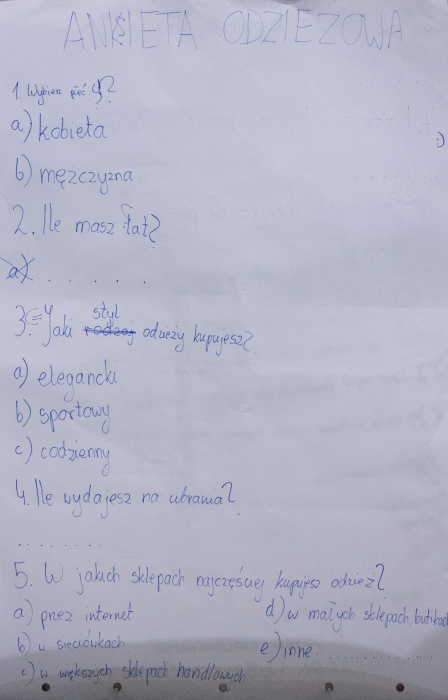 ANKIETA ODZIEŻOWA
1. Wybierz płeć ?
a) kobieta
:)
b) mężczyzna
2. Ile masz lat?
a) . . . . . .
3. Jaki styl rodzaj odzieży kupujesz?
a) elegancki
b) sportowy
c) codzienny
4. Ile wydajesz na ubrania?
. . . . . . .
5. W jakich sklepach najczęściej kupujesz odzież?
a) przez internet
b) w sieciówkach
c) w większych sklepach handlowych
d) w małych sklepach, butikach
e) inne . . . . . . . . . . . .